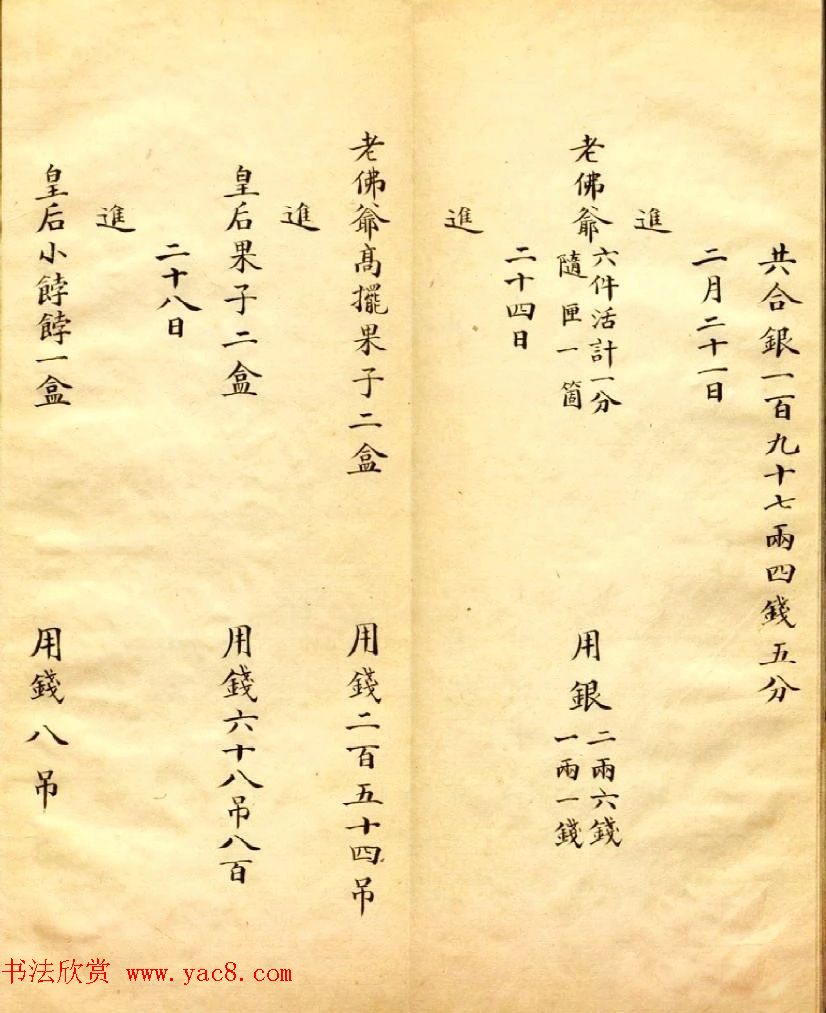 共合銀一百九十七兩四錢五分
二月二十一日
進
老佛爺六件活計一分 用銀二兩六錢
隨匣一箇 一兩一錢
二十四日
進
老佛爺高擺果子二盒 用錢二百五十四吊
進
皇后果子二盒 用錢六十八吊八百
二十八日
進
皇后小餑餑一盒 用錢八吊
书法欣赏 www.yac8.com